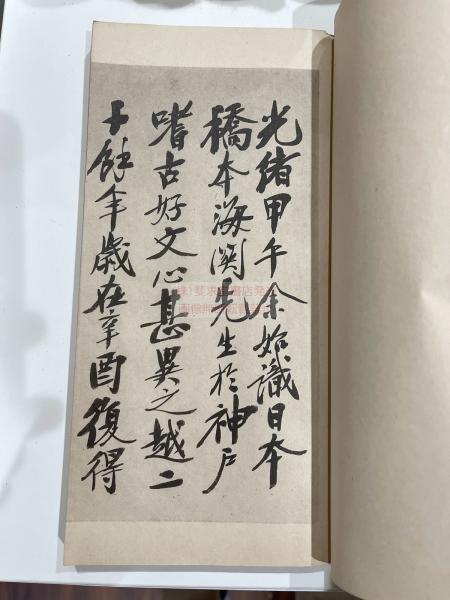 光緒甲午余始識日本
橋本海關先生於神戶
嗜古好文心甚異之越二
十餘年歲在辛酉復得